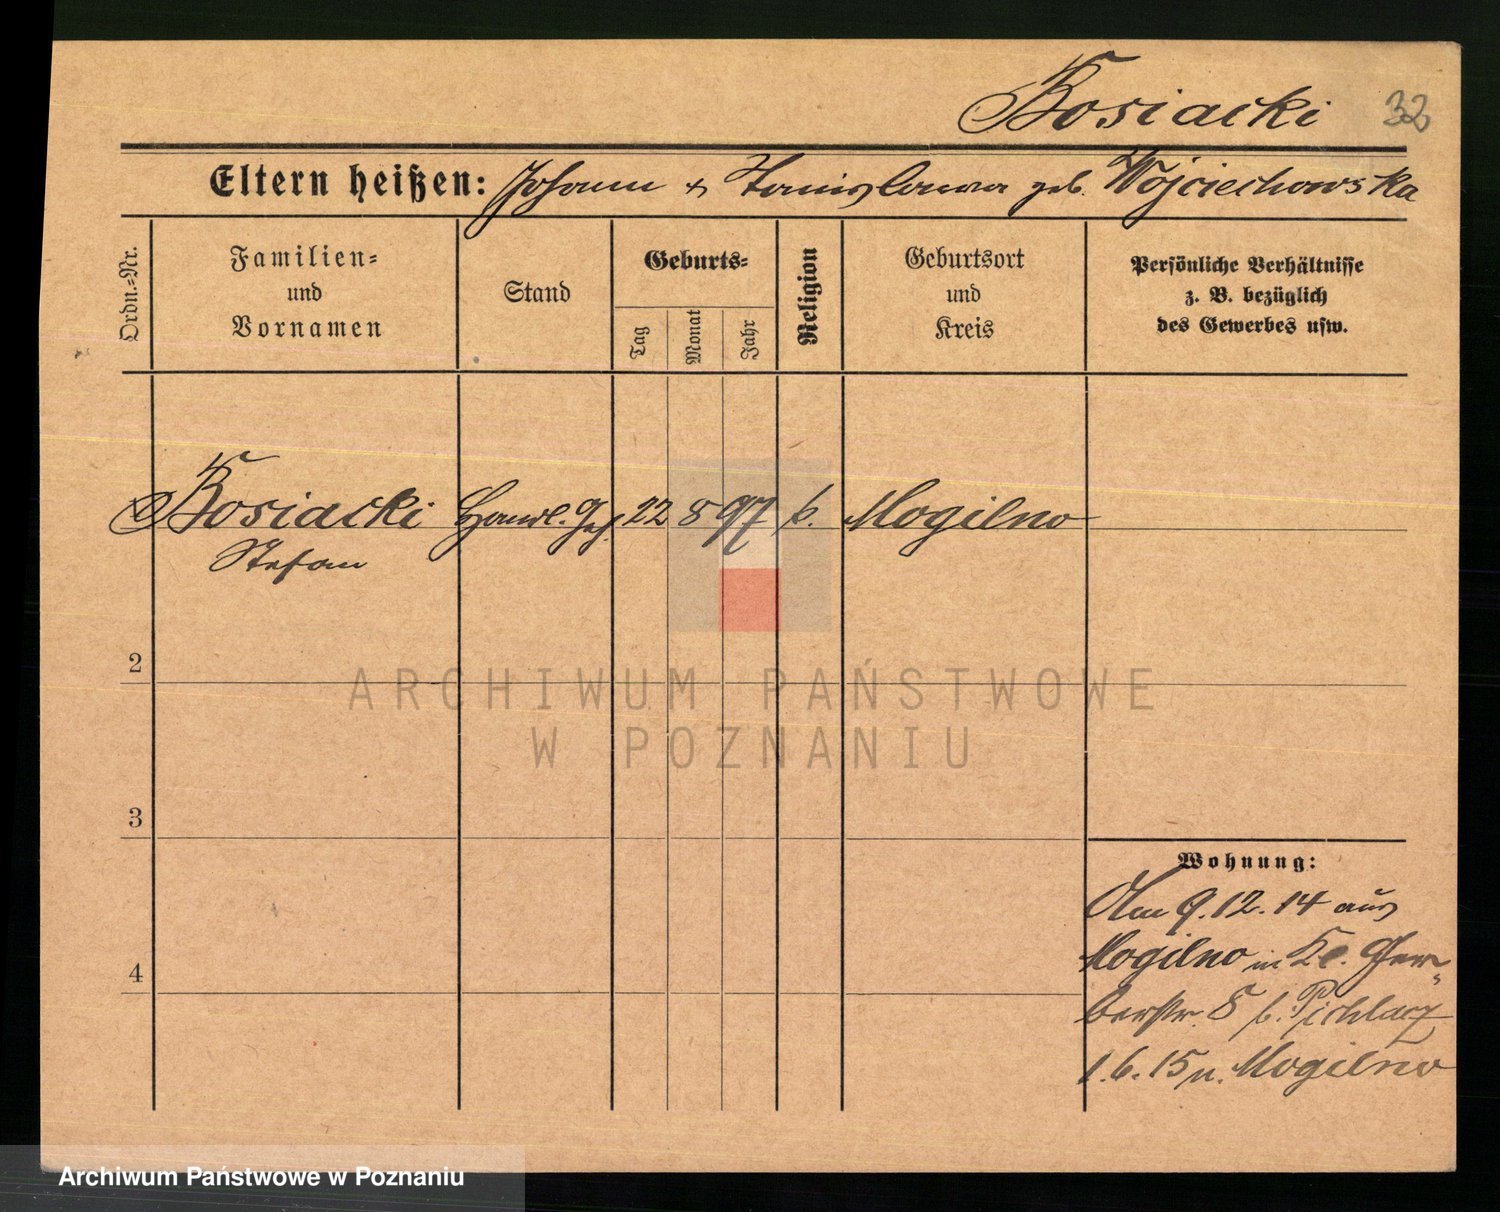 Kosiacki 32
Eltern heißen: Johann & Stanislawa geb. Wojciechowska
Ordn.-Nr.
Familien- und Vornamen
Stand
Geburts-
Tag
Monat
Jahr
Religion
Geburtsort und Kreis
Persönliche Verhältnisse
z. B. bezüglich
des Gewerbes usw.
Kosiacki Handl. Geh. 22 8 97 k. Mogilno
Stefan
2
3
4
Wohnung:
Am 9.12.14 aus
Mogilno in Kl. Ger-
berstr. 8 b.
1.6.15 n. Mogilno
ARCHIWUM PAŃSTWOWE
W POZNANIU
Archiwum Państwowe w Poznaniu